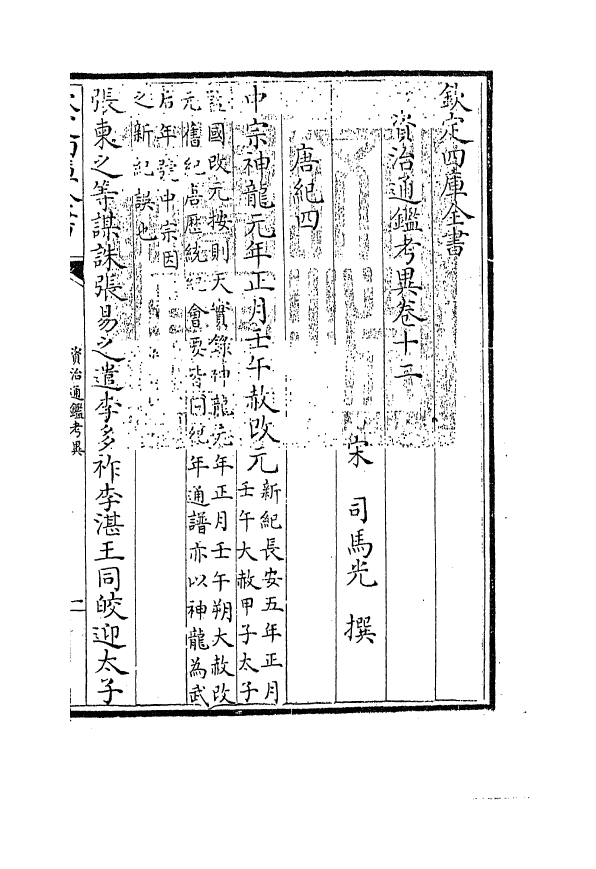 欽定四庫全書
資治通鑑考異卷十二
宋 司馬光 撰
唐紀四
中宗神龍元年正月壬午赦改元
新紀長安五年正月
壬午大赦甲子太子
國改元按則天實錄神龍元年正月壬午朔大赦改
元舊紀唐歷統紀會要皆同紀年通譜亦以神龍為武
后年號中宗因
之新紀誤也
張柬之等謀誅張易之遣李多祚李湛王同皎迎太子
資治通鑑考異